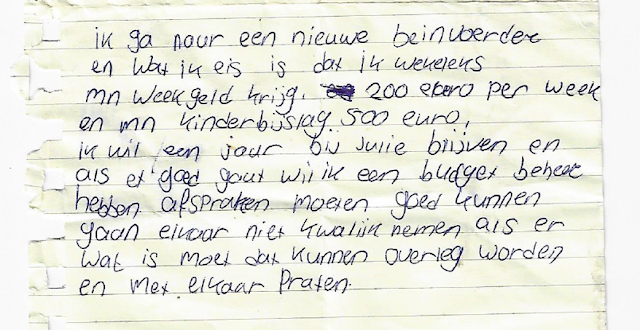 ik ga naar een nieuwe beinvoerder
en wat ik eis is dat ik wekeleks
mn weekgeld krijg. 200 euro per week
en mn kinderbijslag 500 euro,
ik wil een jaar bij jullie blijven en
als et goed gaat wil ik een budget beheer
hebben afspraken moeten goed kunnen
gaan elkaar niet kwalijk nemen als er
wat is moet dat kunnen overleg worden
en met elkaar Praten.